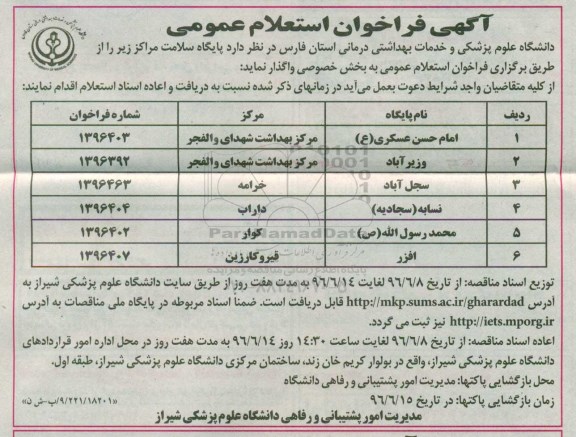 آگهی فراخوان استعلام عمومی
دانشگاه علوم پزشکی و خدمات بهداشتی درمانی استان فارس در نظر دارد پایگاه سلامت مراکز زیر را از
طریق برگزاری فراخوان استعلام عمومی به بخش خصوصی واگذار نماید:
از کلیه متقاضیان واجد شرایط دعوت بعمل می‌آید در زمانهای ذکر شده نسبت به دریافت و اعاده اسناد استعلام اقدام نمایند:
ردیف نام پایگاه مرکز شماره فراخوان
۱ امام حسن عسکری(ع) مرکز بهداشت شهدای والفجر ۱۳۹۶۴۰۳
۲ وزیرآباد مرکز بهداشت شهدای والفجر ۱۳۹۶۳۹۲
۳ سجل آباد خرامه ۱۳۹۶۴۶۳
۴ نسابه (سجادیه) داراب ۱۳۹۶۴۰۴
۵ محمد رسول الله(ص) کوار ۱۳۹۶۴۰۲
۶ افزر قیروکارزین ۱۳۹۶۴۰۷
توزیع اسناد مناقصه: از تاریخ ۹۶/۶/۸ لغایت ۹۶/۶/۱۴ به مدت هفت روز از طریق سایت دانشگاه علوم پزشکی شیراز به
آدرس http://mkp.sums.ac.ir/gharardad قابل دریافت است. ضمناً اسناد مربوطه در پایگاه ملی مناقصات به آدرس
http://iets.mporg.ir نیز ثبت می گردد.
اعاده اسناد مناقصه: از تاریخ ۹۶/۶/۸ لغایت ساعت ۱۴:۳۰ روز ۹۶/۶/۱۴ به مدت هفت روز در محل اداره امور قراردادهای
دانشگاه علوم پزشکی شیراز، واقع در بولوار کریم خان زند، ساختمان مرکزی دانشگاه علوم پزشکی شیراز، طبقه اول.
محل بازگشایی پاکتها: مدیریت امور پشتیبانی و رفاهی دانشگاه
زمان بازگشایی پاکتها: در تاریخ ۹۶/۶/۱۵
«۹/۲۲۱/۱۸۲۰۱/پ-ش ن»
مدیریت امور پشتیبانی و رفاهی دانشگاه علوم پزشکی شیراز